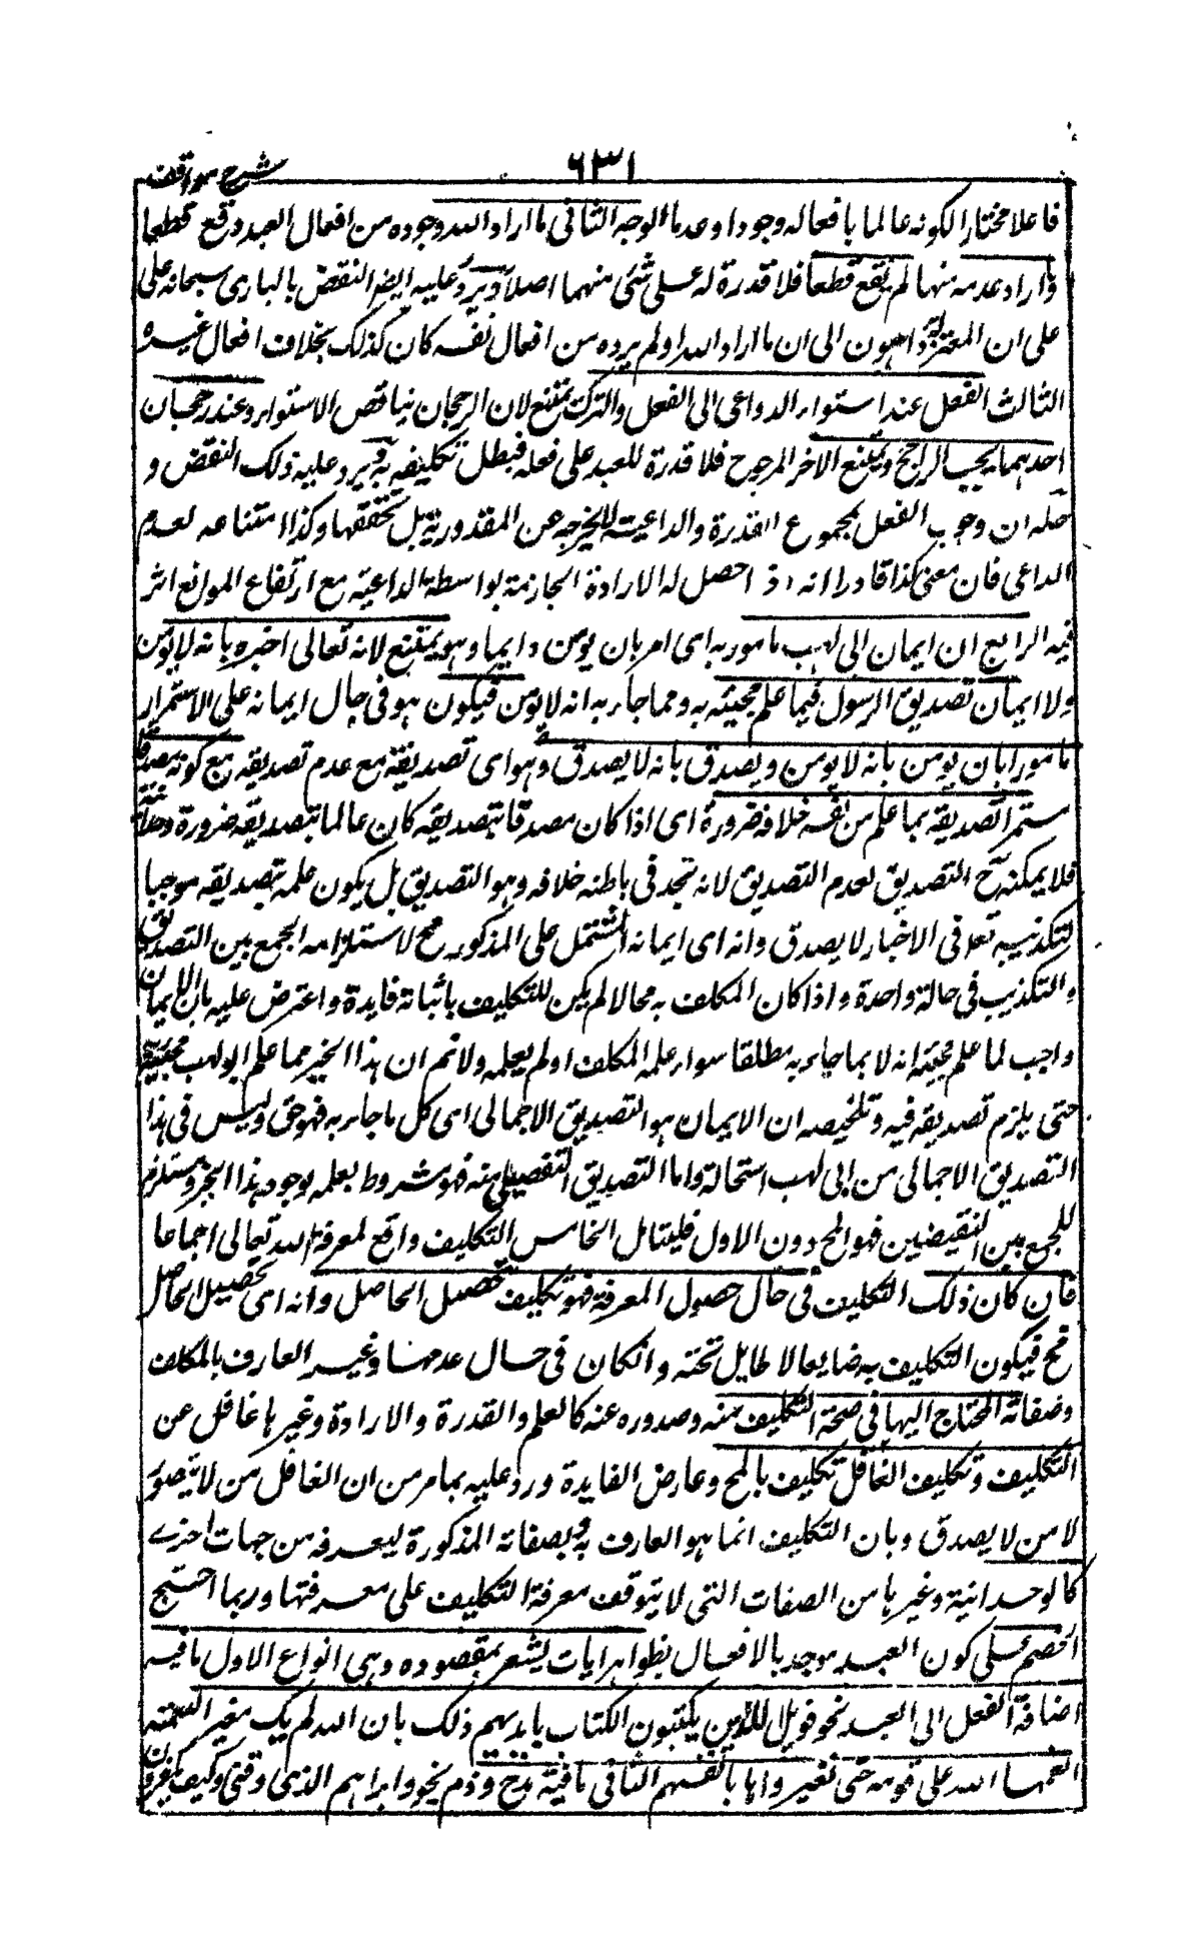 ٦٣١
شرح مواقف
فاعلا مختارا لكونه عالما بافعاله وجودا وعدما الوجه الثانى ما اراد الله وجوده من افعال العبد وقع قطعا
وما اراد عدمه منها لم يقع قطعا فلا قدرة له على شئ منهما اصلا ويرد عليه ايضا النقض بالبارى سبحانه على
على ان المعتزلة ذاهبون الى ان ما اراد الله او لم يرده من افعال نفسه كان كذلك بخلاف افعال غيره
الثالث الفعل عند استواء الدواعى الى الفعل والترك يمتنع لان الرجحان يناقض الاستواء وعند رجحان
احدهما يجب الراجح ويمتنع الاخر المرجوح فلا قدرة للعبد على فعله فبطل تكليفه به ويرد عليه ذلك النقض و
حله ان وجوب الفعل بمجموع القدرة والداعية لا يخرجه عن المقدورية بل يحققها وكذا امتناعه لعدم
الداعى فان معنى كذا قادرا انه اذا حصل له الارادة الجازمة بواسطة الداعية مع ارتفاع الموانع اثر
فيه الرابع ان ايمان ابى لهب مامور به اى امر بان يومن دايما وهو يمتنع لانه تعالى اخبره بانه لا يومن
ولا ايمان تصديق الرسول فيما علم مجيئه به ومما جاء به انه لا يومن فيكون هو فى حال ايمانه على الاستمرار
مامورا بان يومن بانه لا يومن ويصدق بانه لا يصدق وهو اى تصديقه مع عدم تصديقه مع كونه مصدقا
مستمرا تصديقه بما علم من نفسه خلافه ضرورة اى اذا كان مصدقا بتصديقه كان عالما بتصديقه ضرورة
فلا يمكنه ح التصديق لعدم التصديق لانه تجد فى باطنه خلافه وهو التصديق بل يكون علمه بتصديقه موجبا
لتكذيبه تعالى فى الاخبار لا يصدق وانه اى ايمانه المشتمل على المذكور مح لاستلزامه الجمع بين التصديق
والتكذيب فى حالة واحدة واذا كان المكلف به محالا لم يكن للتكليف باثباته فايدة واعترض عليه بان الايمان
واجب لما علم مجيئه انه لا بما جاء به مطلقا سواء علمه المكلف او لم يعلمه ولا نم ان هذا الخبر مما علم ابو لهب مجيئه
حتى يلزم تصديقه فيه وتلخيصه ان الايمان هو التصديق الاجمالى اى كل ما جاء به فهو حق وليس فى هذا
التصديق الاجمالى من ابى لهب استحالة واما التصديق التفصيلى منه فهو مشروط بعلمه بوجود هذا الخبر ومستلزم
للجمع بين النقيضين فهو المح دون الاول فليتامل الخامس التكليف واقع لمعرفة الله تعالى اجماعا
فان كان ذلك التكليف فى حال حصول المعرفة فهو تكليف تحصيل الحاصل وانه اى تحصيل الحاصل
مح فيكون التكليف به ضايعا لا طايل تحته وانكان فى حال عدمها وغير العارف بالمكلف
وصفاته المحتاج اليها فى صحة التكليف منه وصدوره عنه كالعلم والقدرة والارادة وغيرها غافل عن
التكليف وتكليف الغافل تكليف بالمح وعارض الفايدة ورد عليه بما مر من ان الغافل من لا يتصور
لا من لا يصدق وبان التكليف انما هو العارف به وبصفاته المذكورة ليعرفه من جهات اخرى
كالوحدانية وغيرها من الصفات التى لا يتوقف معرفة التكليف على معرفتها وربما احتج
الخصم على كون العبد موجد بالافعال بظواهر ايات يشعر بمقصوده وهى انواع الاول ما فيه
اضافة الفعل الى العبد نحو فويل للذين يكتبون الكتاب بايديهم ذلك بان الله لم يك مغيرا نعمته
انعمها الله على قومه حتى تغيروا ما بانفسهم الثانى ما فيه مدح وذم نحو وابراهيم الذى وفى وكيف تكفرون